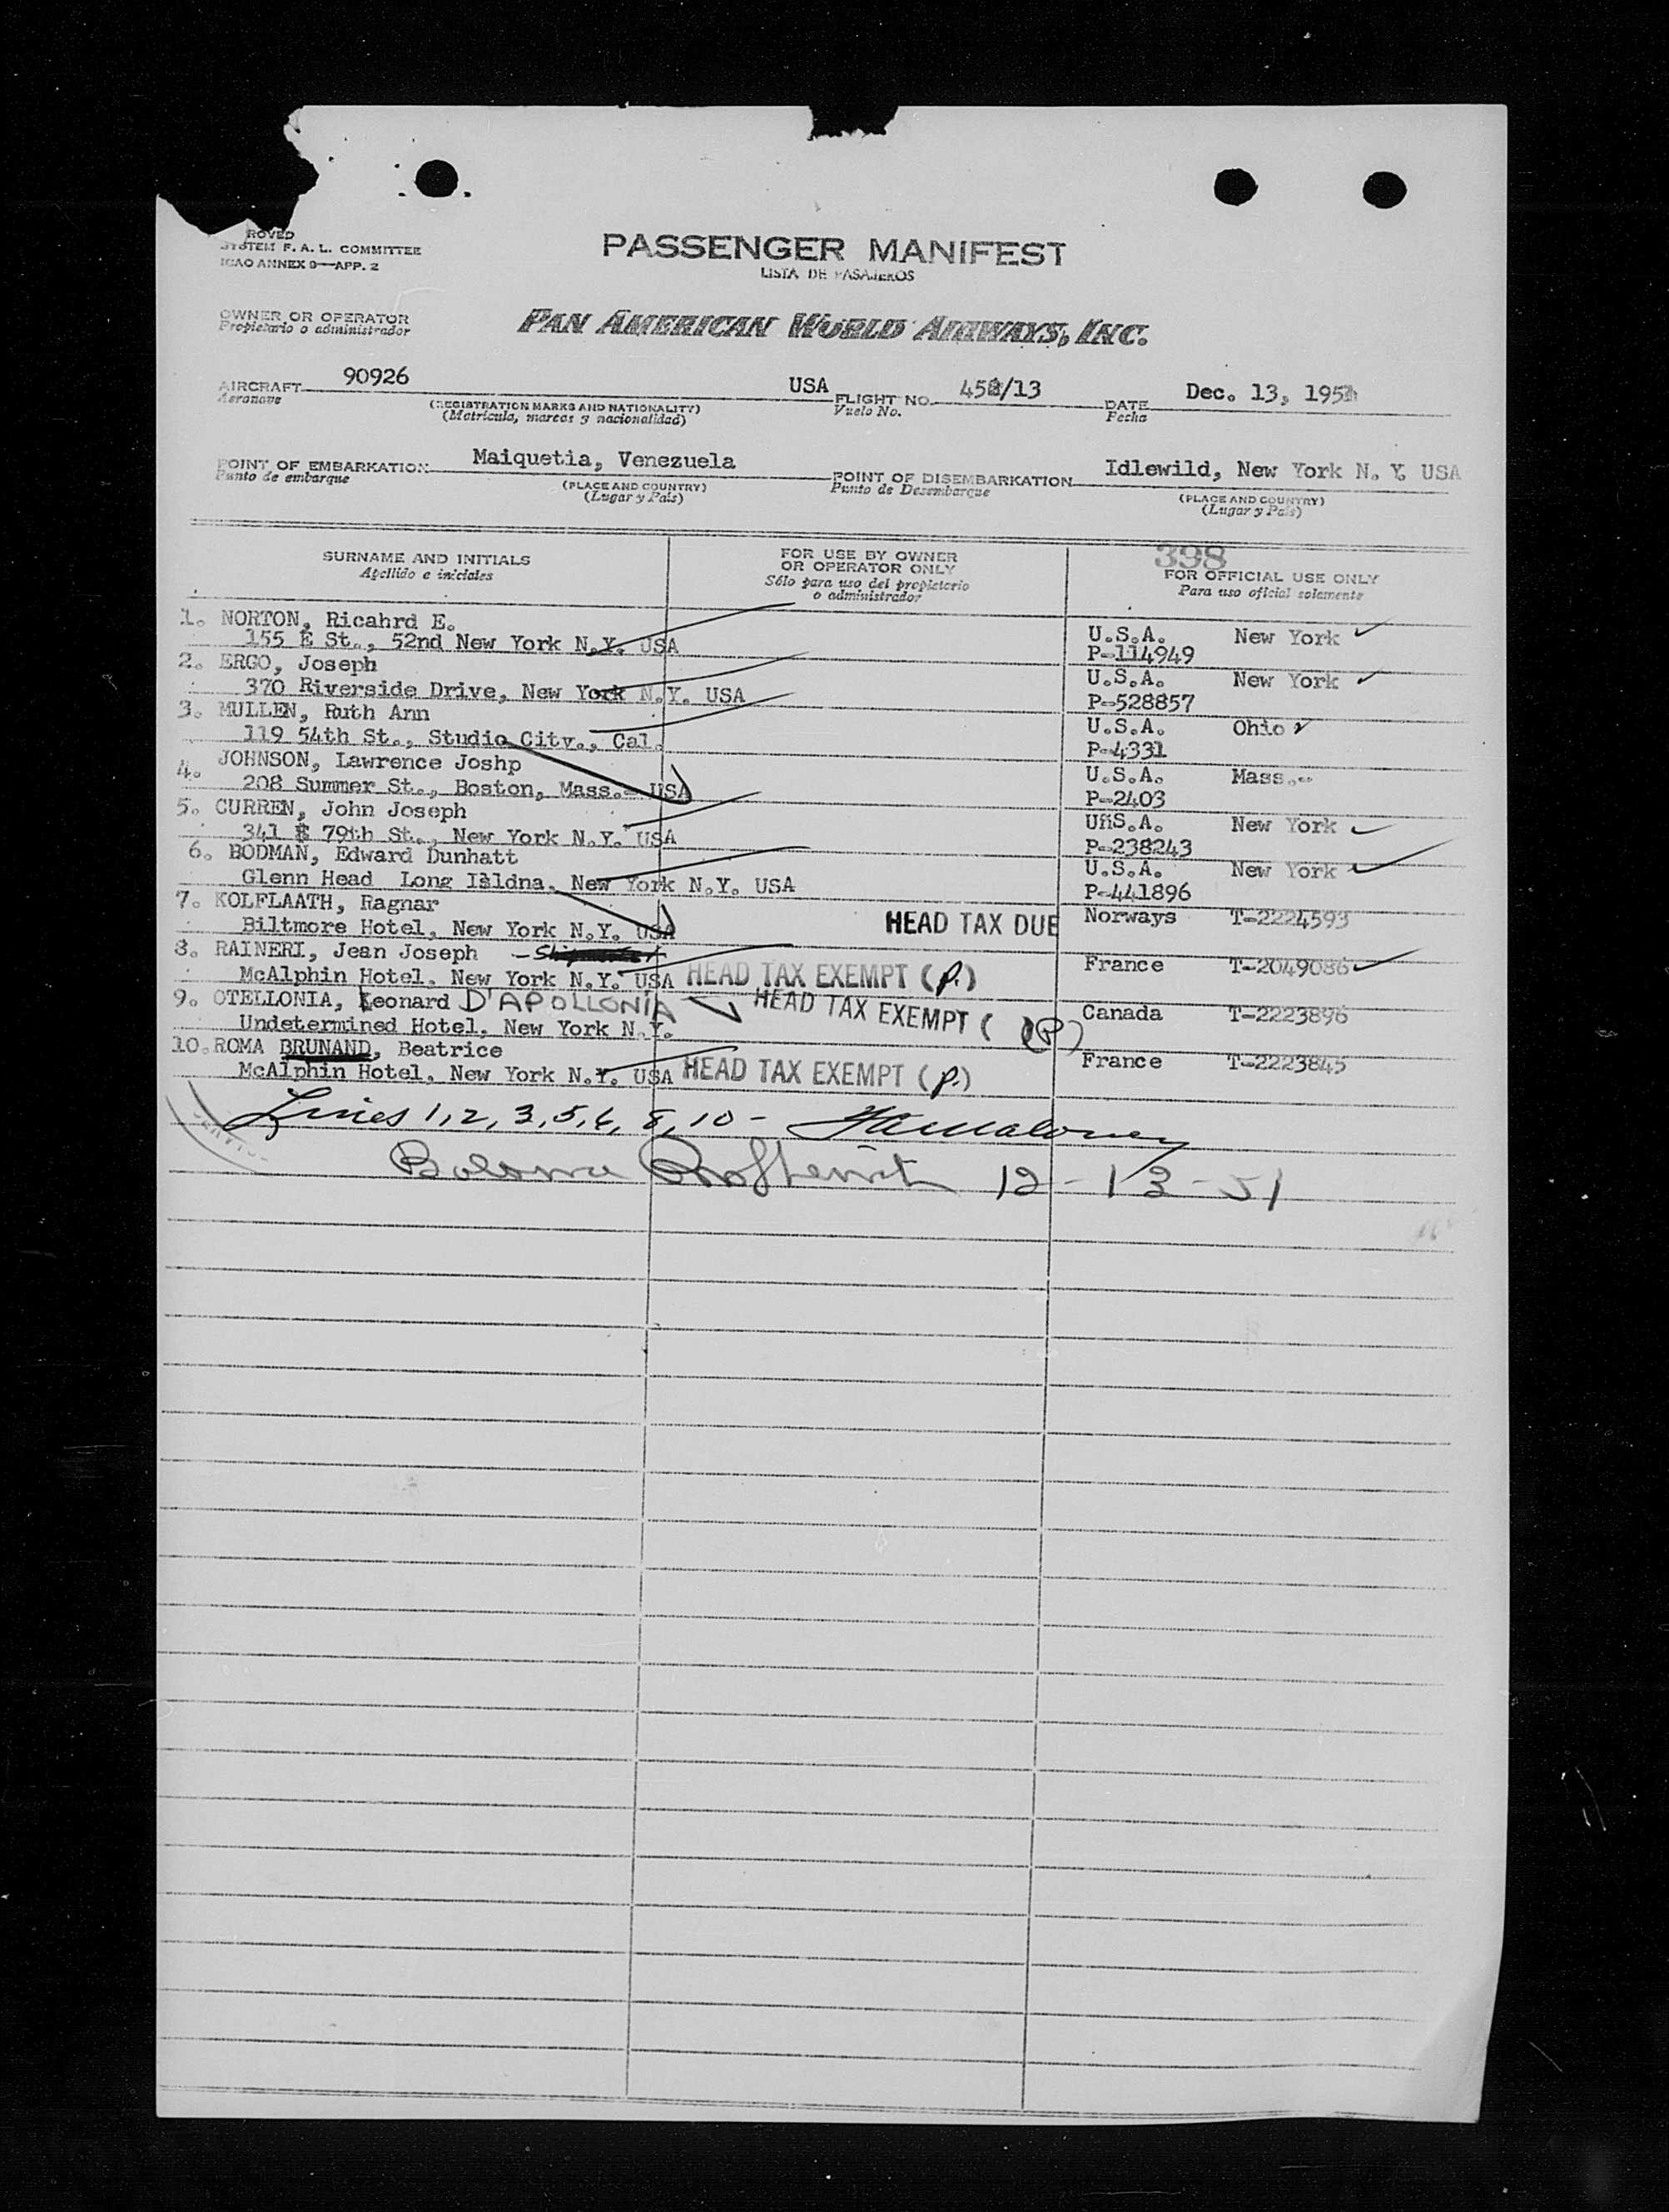 ROVED
SYSTEM F. A. L. COMMITTEE
ICAO ANNEX 9—APP. 2
PASSENGER MANIFEST
LISTA DE PASAJEROS
OWNER OR OPERATOR
Propietario o administrador
PAN AMERICAN WORLD AIRWAYS, INC.
AIRCRAFT 90926 USA FLIGHT NO. 452/13 DATE Dec. 13, 1951
Aeronave (REGISTRATION MARKS AND NATIONALITY) Vuelo No. Fecha
(Matricula, marcas y nacionalidad)
POINT OF EMBARKATION Maiquetia, Venezuela POINT OF DISEMBARKATION Idlewild, New York N. Y. USA
Punto de embarque (PLACE AND COUNTRY) Punto de Desembarque (PLACE AND COUNTRY)
(Lugar y País) (Lugar y País)
398
SURNAME AND INITIALS FOR USE BY OWNER OR OPERATOR ONLY FOR OFFICIAL USE ONLY
Apellido e iniciales Sólo para uso del propietario o administrador Para uso oficial solamente
1. NORTON, Ricahrd E. U.S.A. New York
155 E St., 52nd New York N.Y. USA P-114949
2. ERGO, Joseph U.S.A. New York
370 Riverside Drive, New York N.Y. USA P-528857
3. MULLEN, Ruth Ann U.S.A. Ohio
119 54th St., Studio City., Cal. P-4331
4. JOHNSON, Lawrence Joshp U.S.A. Mass.
208 Summer St., Boston, Mass. USA P-2403
5. CURREN, John Joseph U.S.A. New York
341 E 79th St., New York N.Y. USA P-238243
6. BODMAN, Edward Dunhatt U.S.A. New York
Glenn Head Long Isldna, New York N.Y. USA P-441896
7. KOLFLAATH, Ragnar Norways T-2224593
Biltmore Hotel, New York N.Y. USA HEAD TAX DUE
8. RAINERI, Jean Joseph France T-2049086
McAlphin Hotel, New York N.Y. USA HEAD TAX EXEMPT (P.)
9. OTELLONIA, Leonard D'APOLLONIA HEAD TAX EXEMPT (P) Canada T-2223896
Undetermined Hotel, New York N.Y.
10. ROMA BRUNAND, Beatrice France T-2223845
McAlphin Hotel, New York N.Y. USA HEAD TAX EXEMPT (P.)
Lines 1, 2, 3, 5, 6, 8, 10 -
12-13-51